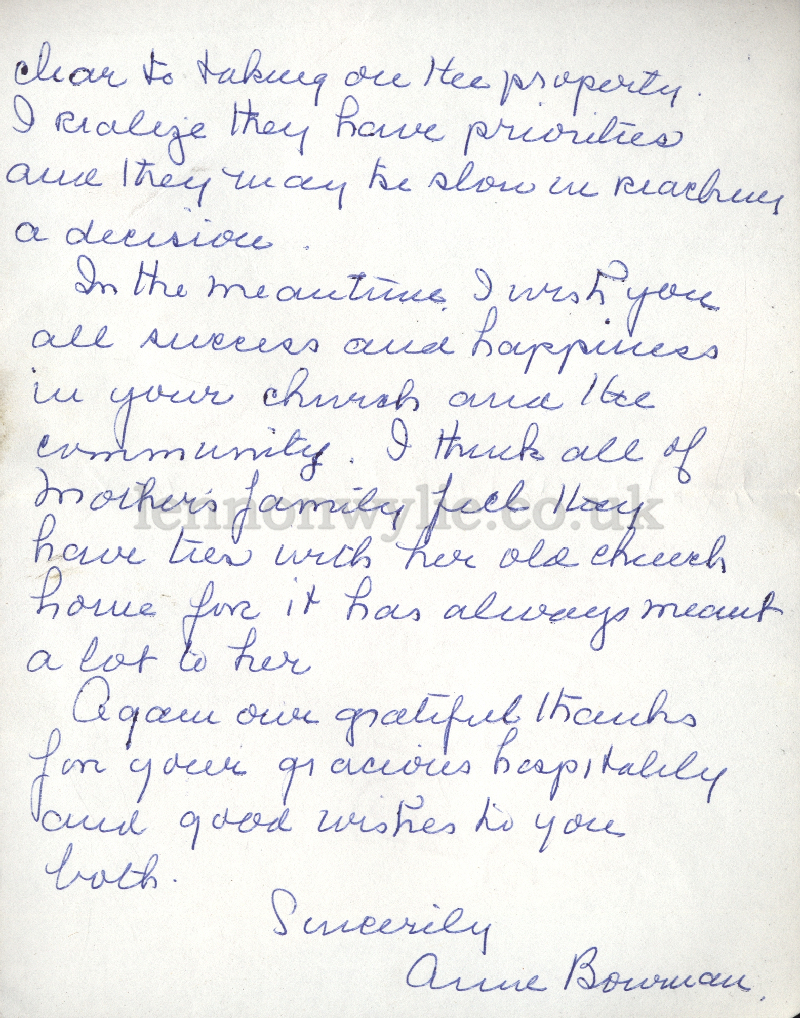 clear to taking on the property.
I realize they have priorities
and they may be slow in reaching
a decision.
In the meantime I wish you
all success and happiness
in your church and the
community. I think all of
Mother's family feel they
have ties with her old church
home for it has always meant
a lot to her
Again our grateful thanks
for your gracious hospitality
and good wishes to you
both.
Sincerely
Anne Bowman.
lennonwylie.co.uk